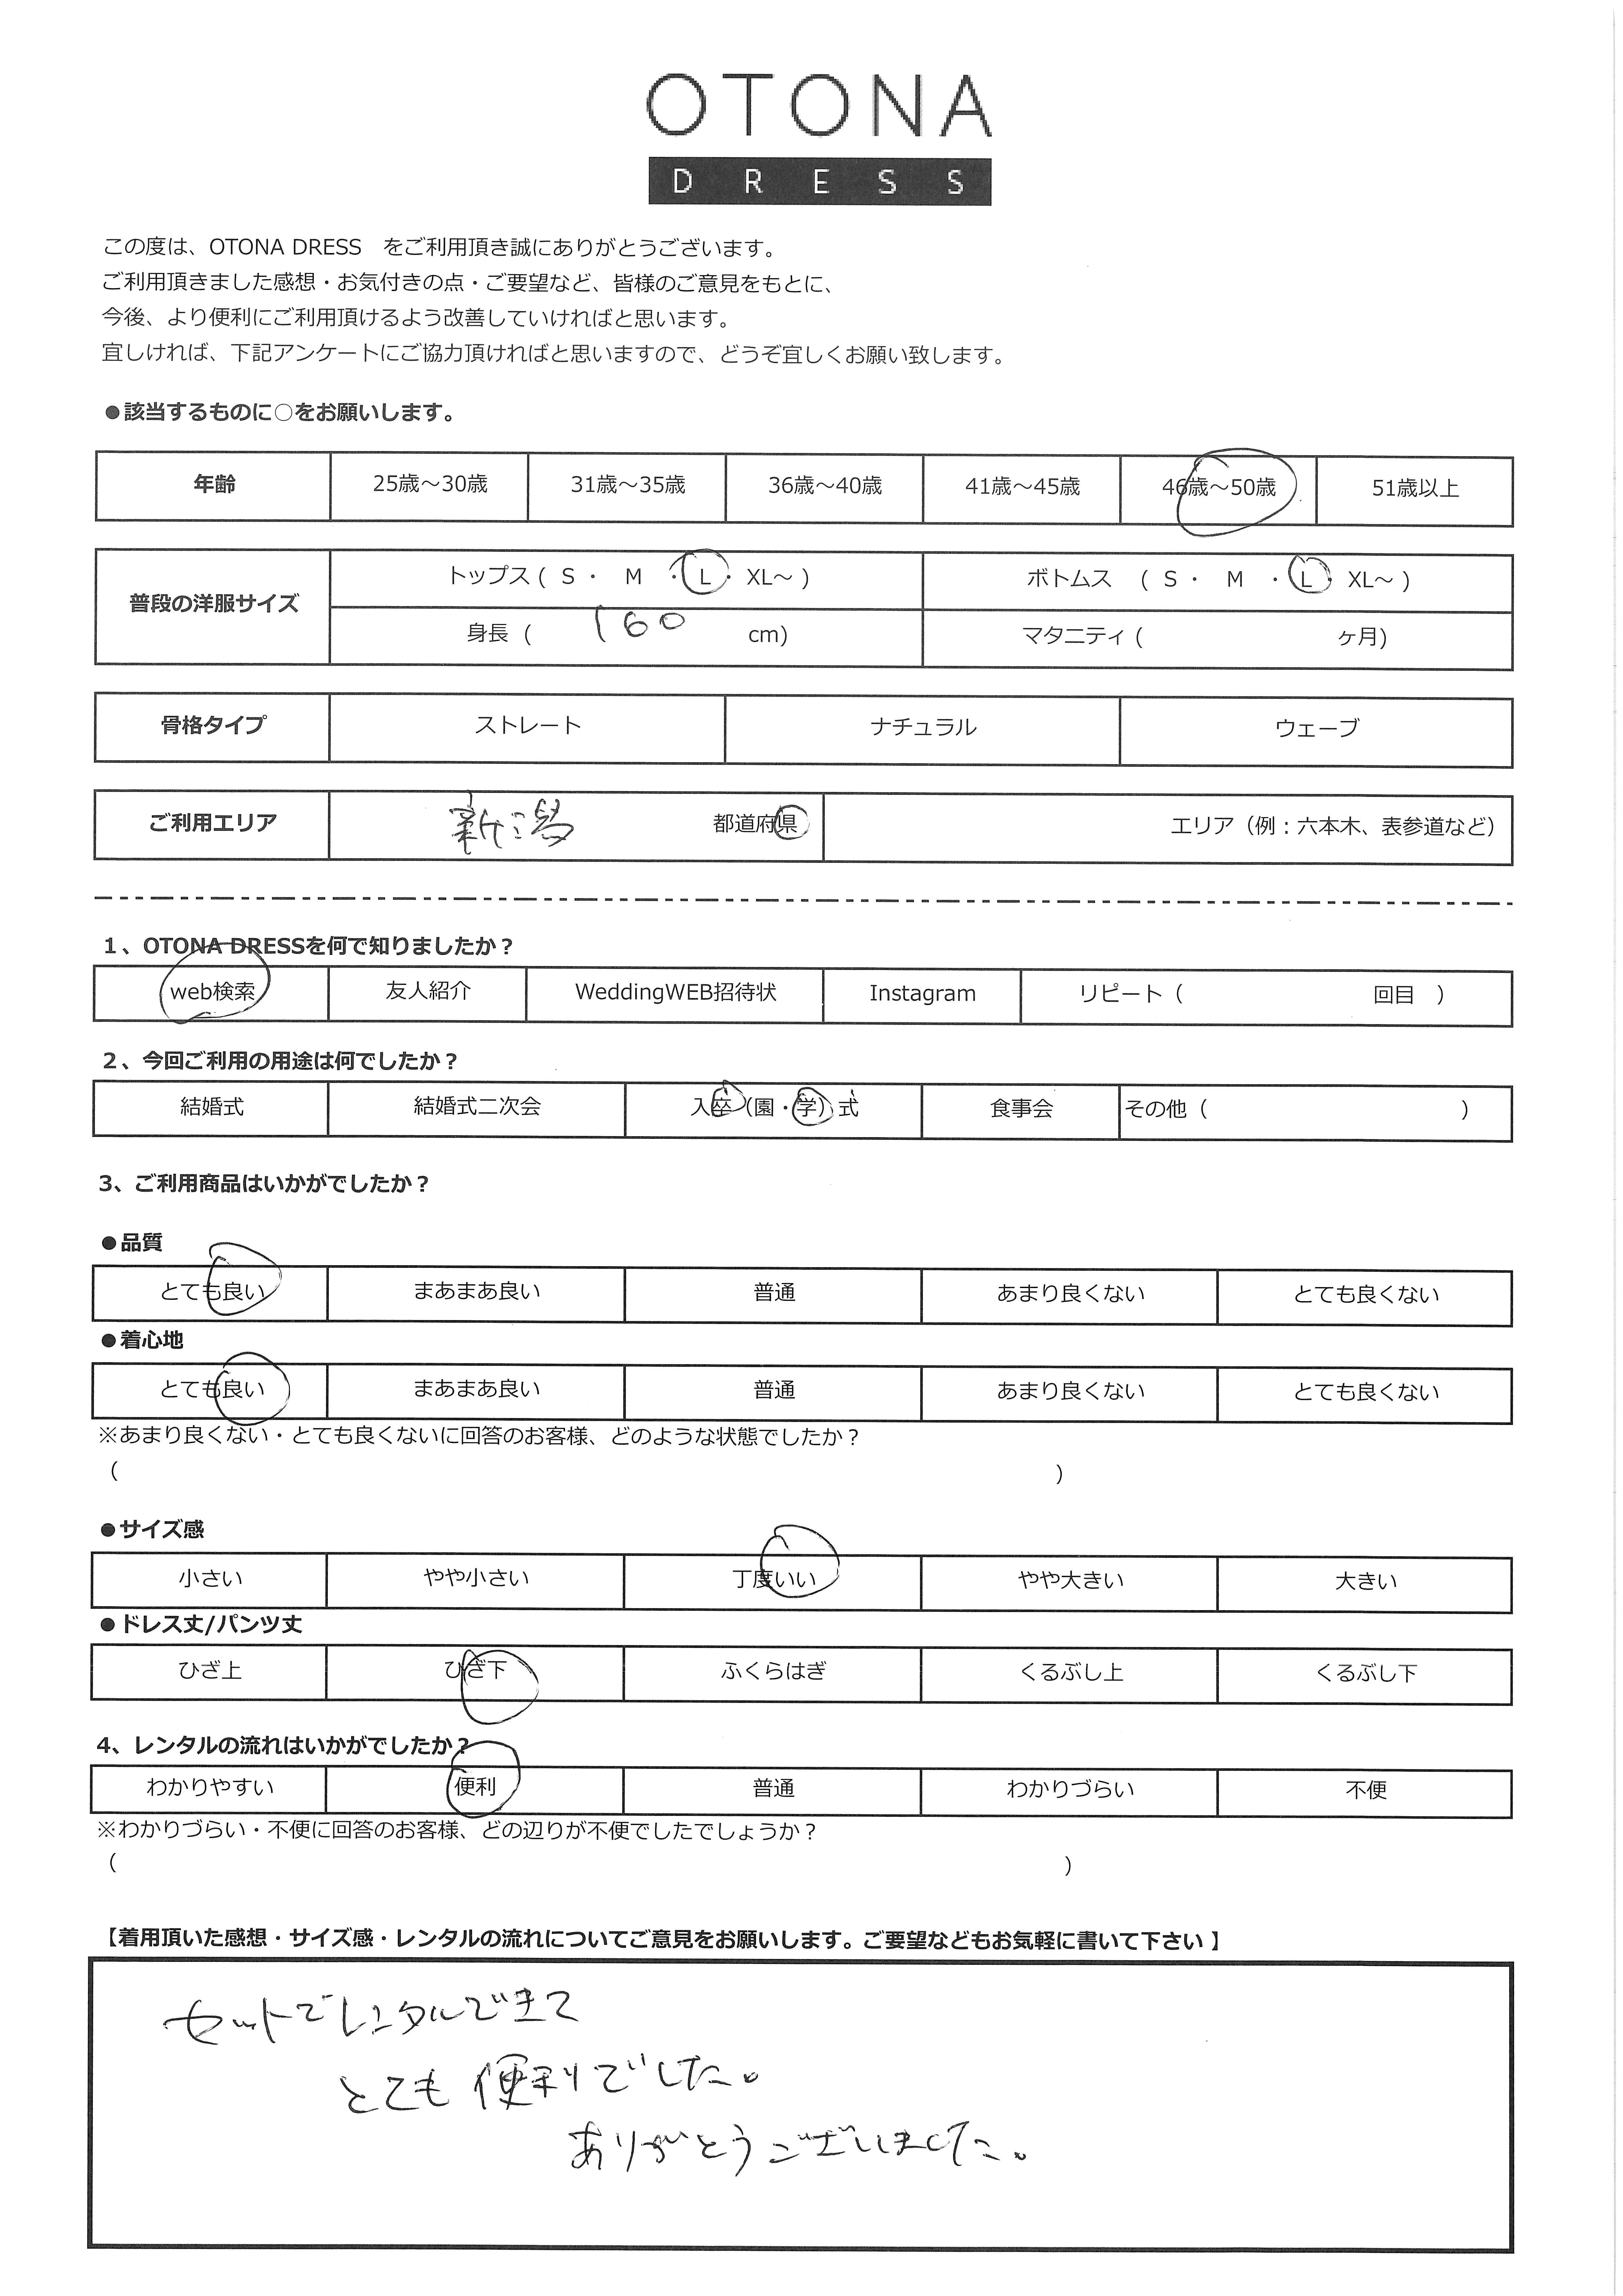 OTONA
DRESS
この度は、OTONA DRESS　をご利用頂き誠にありがとうございます。
ご利用頂きました感想・お気付きの点・ご要望など、皆様のご意見をもとに、
今後、より便利にご利用頂けるよう改善していければと思います。
宜しければ、下記アンケートにご協力頂ければと思いますので、どうぞ宜しくお願い致します。
●該当するものに○をお願いします。
年齢 25歳～30歳 31歳～35歳 36歳～40歳 41歳～45歳 46歳～50歳 51歳以上
普段の洋服サイズ トップス ( S ・ M ・ L ・ XL～ ) ボトムス ( S ・ M ・ L ・ XL～ )
身長 ( 160 cm) マタニティ ( ヶ月)
骨格タイプ ストレート ナチュラル ウェーブ
ご利用エリア 新潟 都道府県 エリア（例：六本木、表参道など）
1、OTONA DRESSを何で知りましたか？
web検索 友人紹介 WeddingWEB招待状 Instagram リピート（ 回目 ）
2、今回ご利用の用途は何でしたか？
結婚式 結婚式二次会 入卒（園・学）式 食事会 その他（ ）
3、ご利用商品はいかがでしたか？
●品質
とても良い まあまあ良い 普通 あまり良くない とても良くない
●着心地
とても良い まあまあ良い 普通 あまり良くない とても良くない
※あまり良くない・とても良くないに回答のお客様、どのような状態でしたか？
（ ）
●サイズ感
小さい やや小さい 丁度いい やや大きい 大きい
●ドレス丈/パンツ丈
ひざ上 ひざ下 ふくらはぎ くるぶし上 くるぶし下
4、レンタルの流れはいかがでしたか？
わかりやすい 便利 普通 わかりづらい 不便
※わかりづらい・不便に回答のお客様、どの辺りが不便でしたでしょうか？
（ ）
【着用頂いた感想・サイズ感・レンタルの流れについてご意見をお願いします。ご要望などもお気軽に書いて下さい】
セットでレンタルできて
とても便利でした。
ありがとうございました。